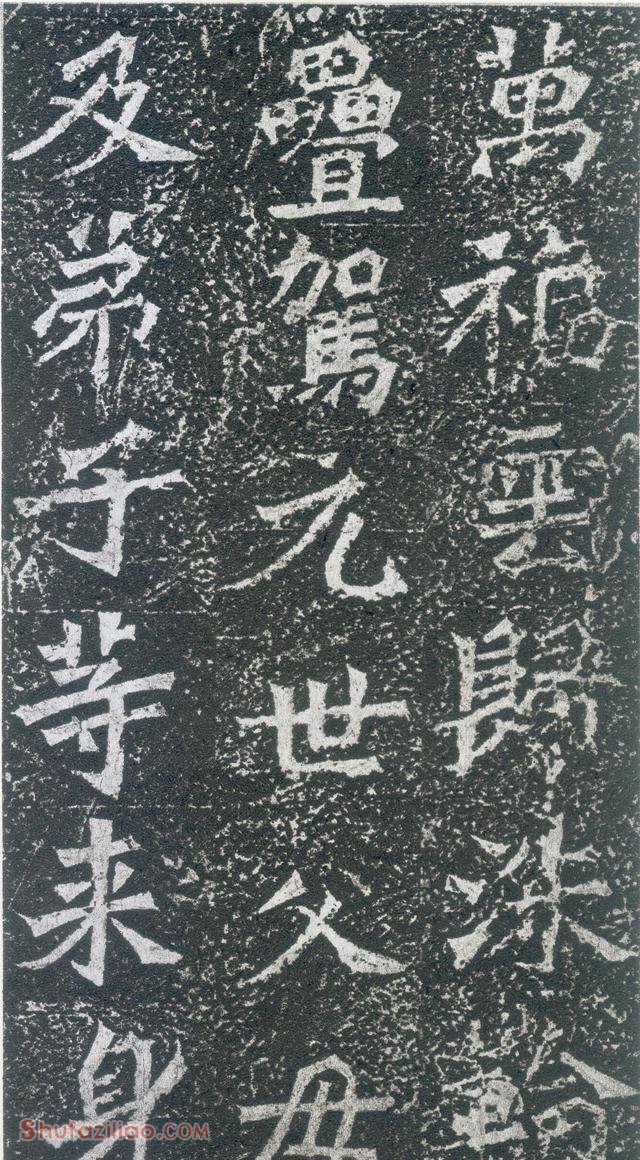 萬福雲歸洙輪
疊駕元世父母
及弟子等来身
Shufaziliao.COM